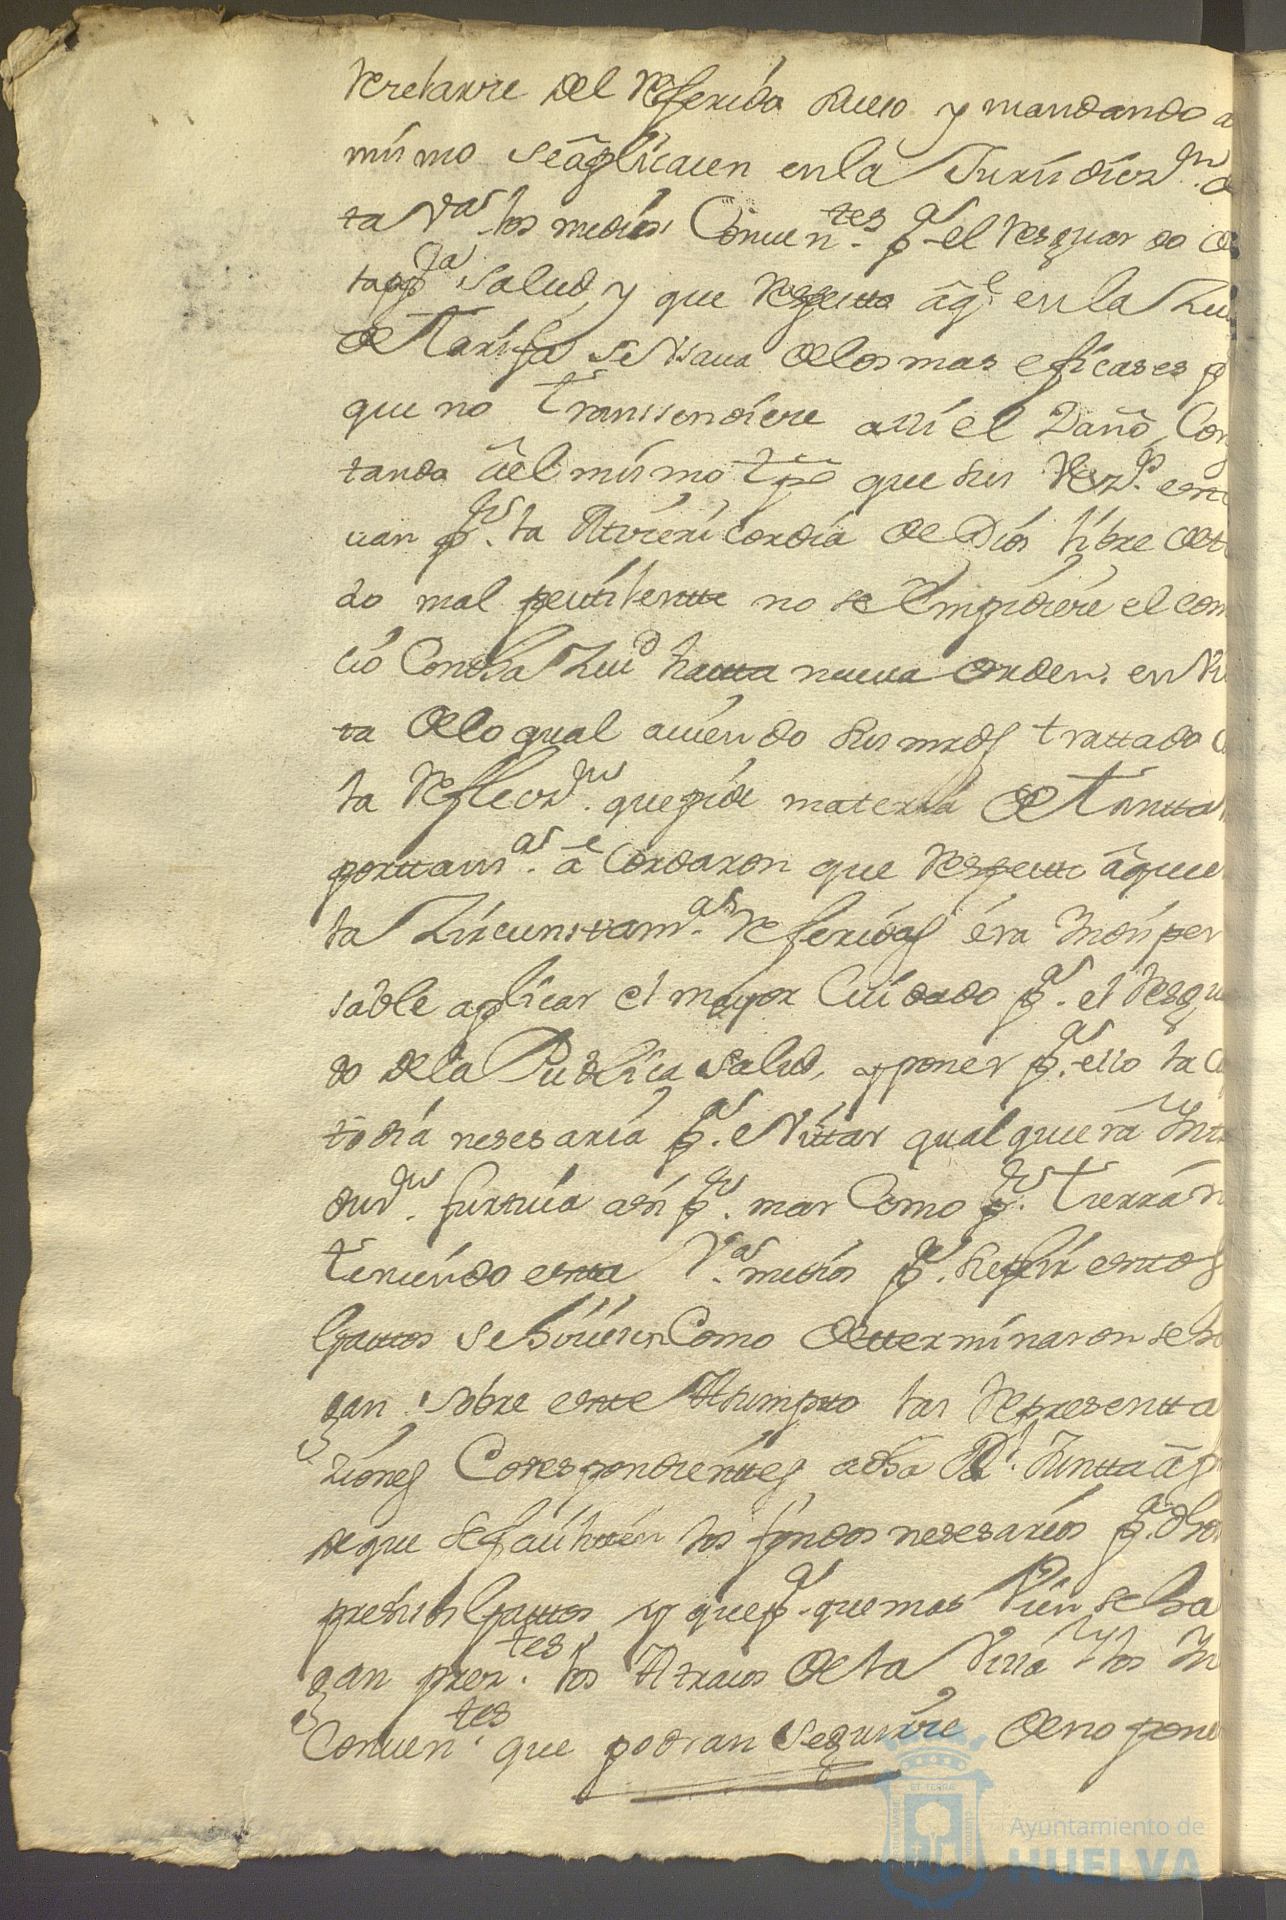 Resetarse del Referido Puerto y mandando a
mismo se aplicasen en la Jurisdizn. d
ta Va. los medios ConvenTes. pa. el resguardo de
ta ppca. salud, y que respecto âqe. en la Ziu
de Tarifa se Usava delos mas eficases p
que no transsendiese assi el Daño, Con
tando âel mismo tpo que sus Vezos. esta
van pr. la Missericordia de Dios libre de to
do mal pestilente no se Empidiere el com
cio Condha Ziud hasta nueva orden. en Vis
ta delo qual aviendo sus mrds trattado
la Reflecn. que pide materia de tantta
porttanas. âcordaron que respecto âque
la Zircunstanas. Referidas era Indispen
sable aplicar el mayor Cuidado pa. el Resgu
do dela Publica salud, y poner pa. ello la
todia nesesaria pa. eVittar qualquiera Intr
duzn. furtiva asi pr. mar Como pr. tierra n
teniendo esta Va. medios pa. suplir estos
Gasttos se hisiesen Como determinaron se ha
gan sobre este Assumpto las Represenatta
ziones Corespondienttes adha Rl. Juntta â
de que se facilitten los fondos nesesarios pa. dhos
presisos Gasttos y que pa. que mas Vien se ha
gan preztes. los Atrasos de la Villa y los In
ConvenTes. que podran seguirse de no pone
Ayuntamiento de
HUELVA